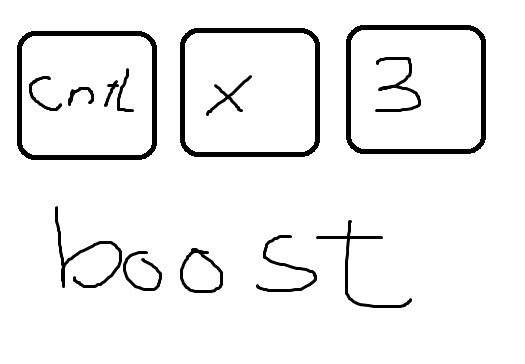 cntl x 3
boost